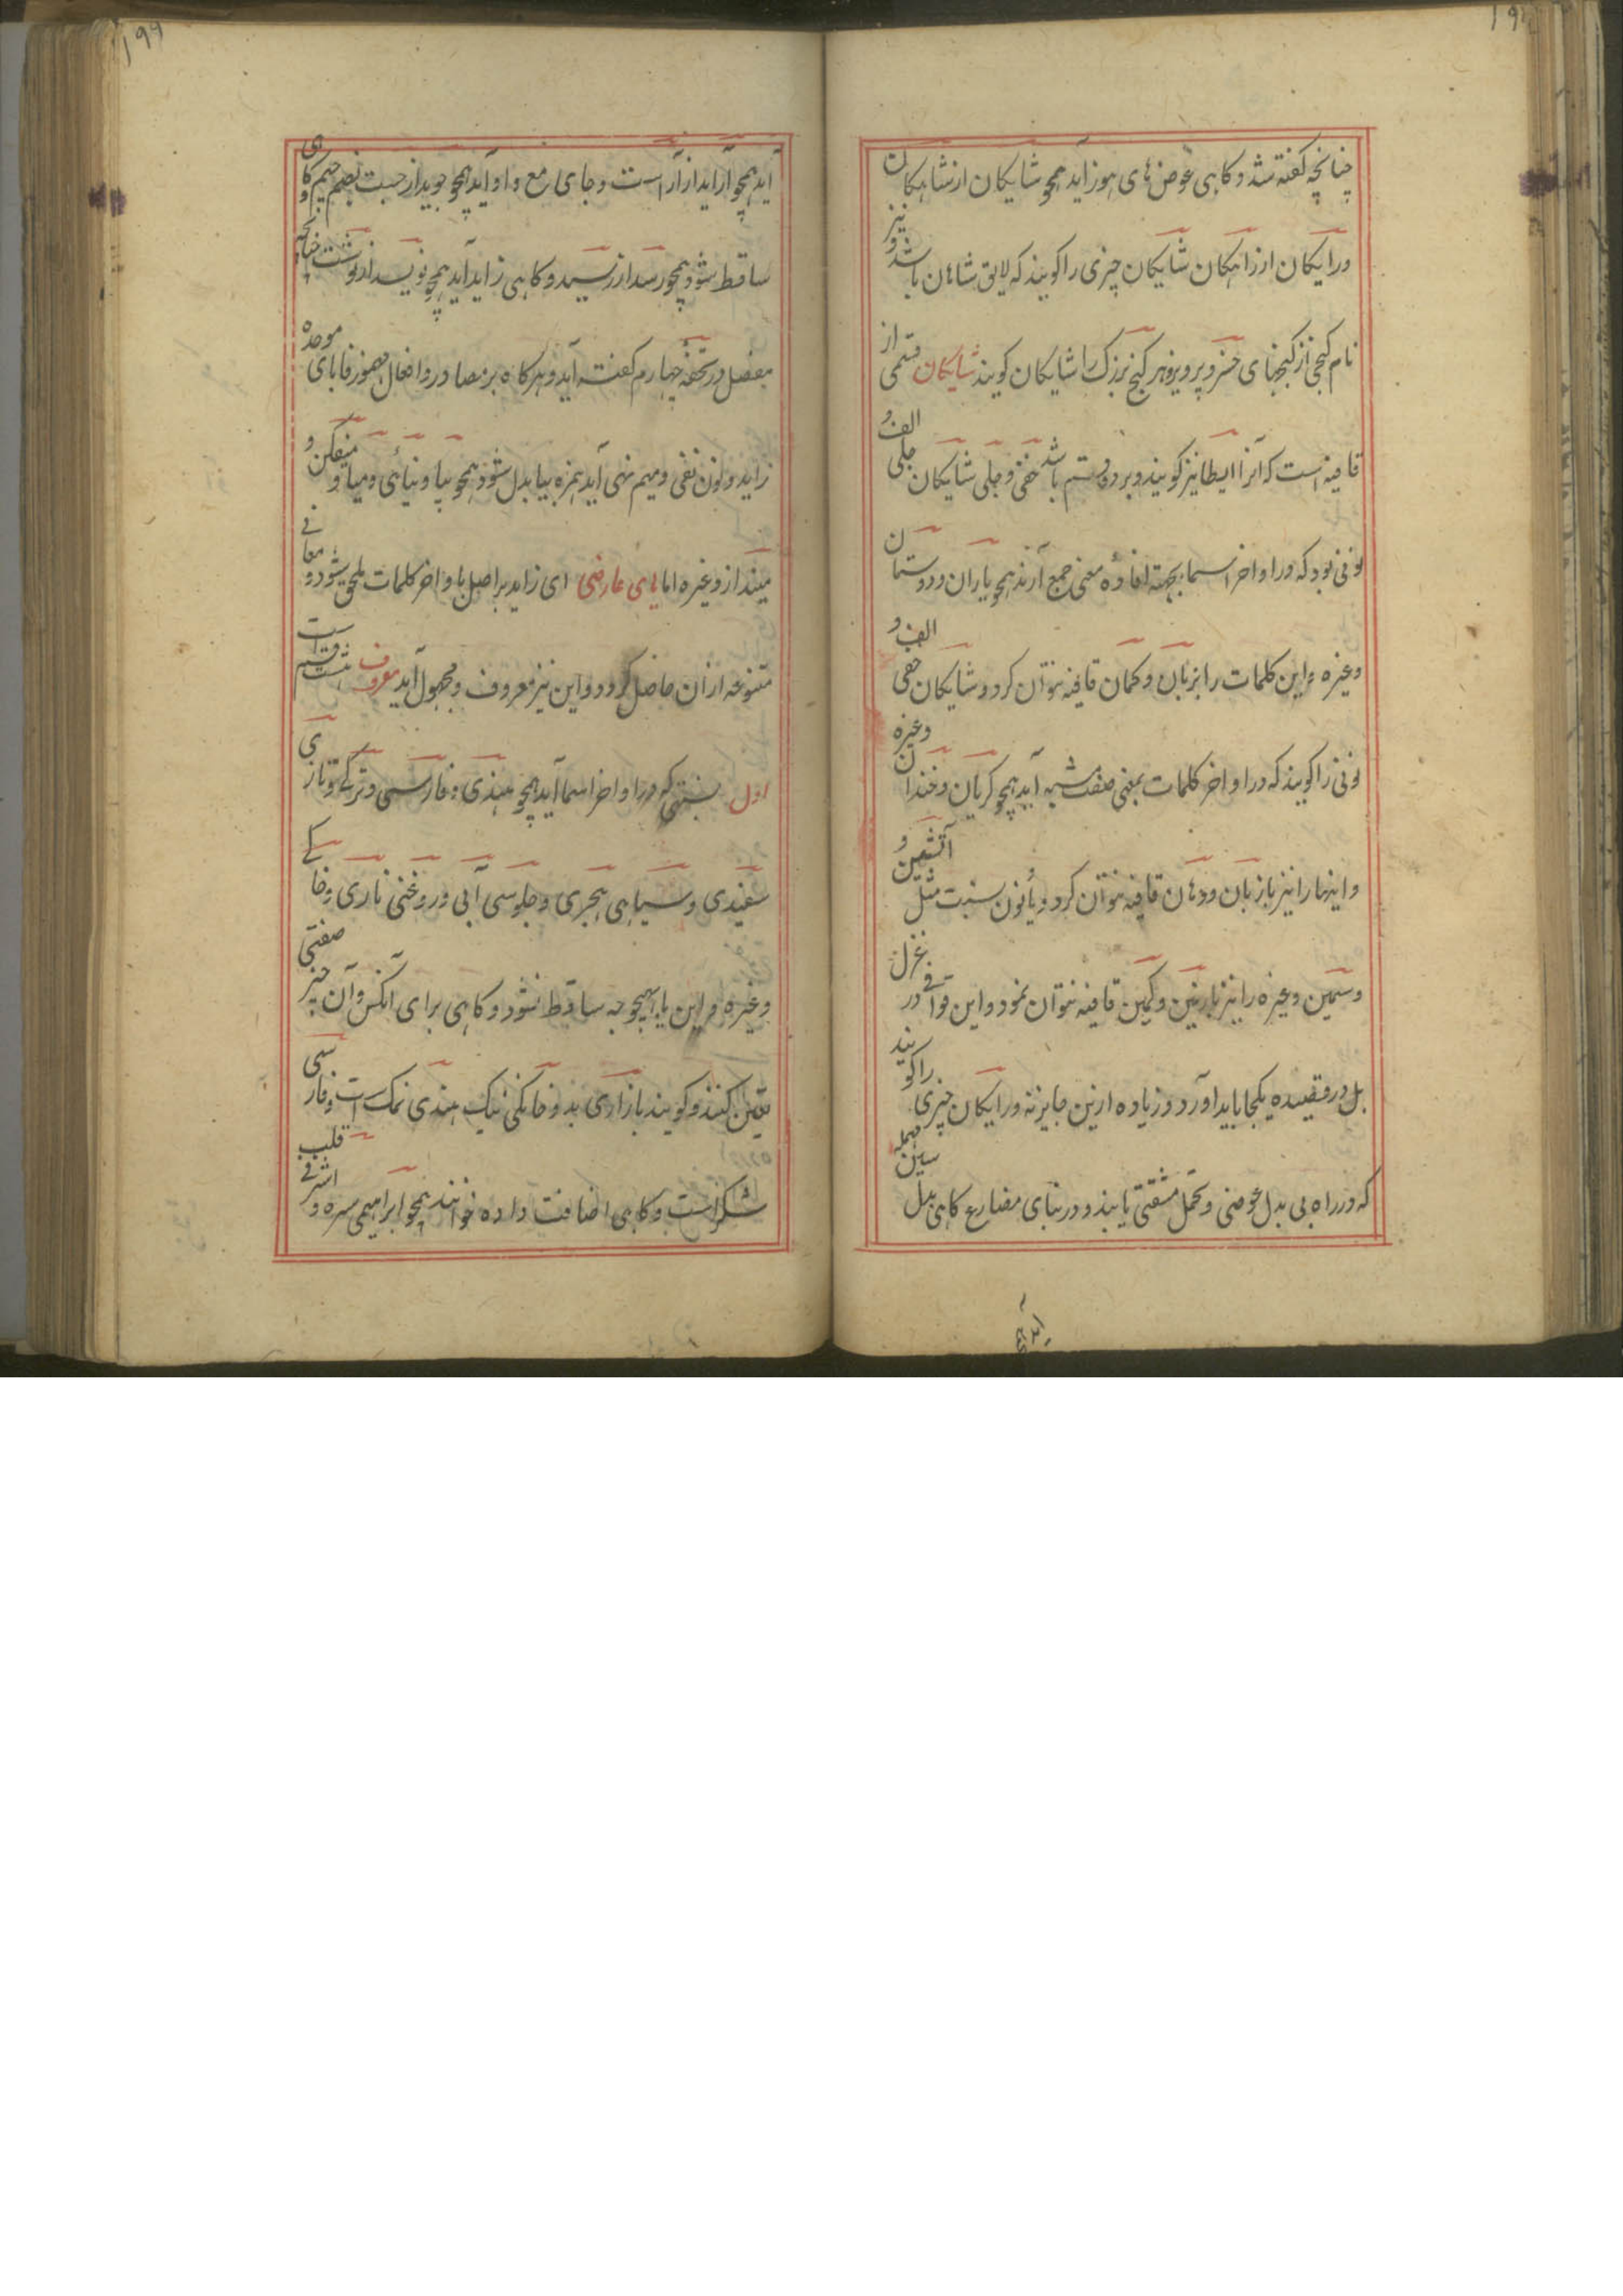 چنانچه کفته شد و کاهی عوض های هوز آید همچو شایکان از شاهکان
ورایکان از راهکان شایکان چیزی را کویند که لایق شاهان باشد و نیز
نام کنجی از کنجهای خسرو پرویز و هر کنج بزرک را شایکان کویند شایکان قسمی از
قافیه است که آنرا ایطا نیز کویند و بر دو قسم باشد خفی و جلی شایکان جلی الف و
نونی بود که در اواخر اسما بجهته افاده معنی جمع آرند همچو یاران و دوستان
وغیره و این کلمات را بزبان و کمان قافیه نتوان کرد و شایکان خفی الف و
نونی را کویند که در اواخر کلمات بمعنی صفت مشبه آید همچو کریان و خندان وغیره
و اینها را نیز با زبان و دهان قافیه نتوان کرد و یا و نون نسبت مثل آتشین و
و سیمین وغیره را نیز بازنین و کمین قافیه نتوان نمود و این قوافی در غزل
بل در قصیده یکجا باید آورد و زیاده ازین جایز نه ورایکان چیزی را کویند
که در راه بی بدل عوضی و تحمل مشقتی یابند و در بنای مضارع کاهی بدل سین مهمله
آید همچو
۱۹۹
آید همچو آراید از آراست و جای مع واو آید همچو جوید از جست بضم جیم و کاهی
ساقط شود همچو رسد از رسید و کاهی زاید آید همچو نویسد از نوشت چنانچه
مفصل در تحفه چهارم کفته آید و هرکاه بر مصادر و افعال مهموز فا بای موحده
زاید و نون نفی و میم نهی آید همزه بیا بدل شود همچو بیا و نیائی و میا و میفکن و
میندازد وغیره اما یای عارضی ای زاید بر اصل با واخر کلمات ملحق شود و معانی
متنوعه از ان حاصل کردد و این نیز معروف و مجهول آید معروف هشت قسم است
اول نسبتی که در اواخر اسما آید همچو هندی و فارسی و ترکی و تازی
سفیدی و سیاهی هجری و جلوسی آبی و روغنی ناری و خاکی
وغیره و این یا بهیچوجه ساقط نشود و کاهی برای آنکس و آن چیز صفتی
تعین کنند و کویند بازاری بد و خانکی نیک هندی نمک است و فارسی
شکر است و کاهی اضافت داده خوانند همچو ابراهیمی سره و اشرفی قلب